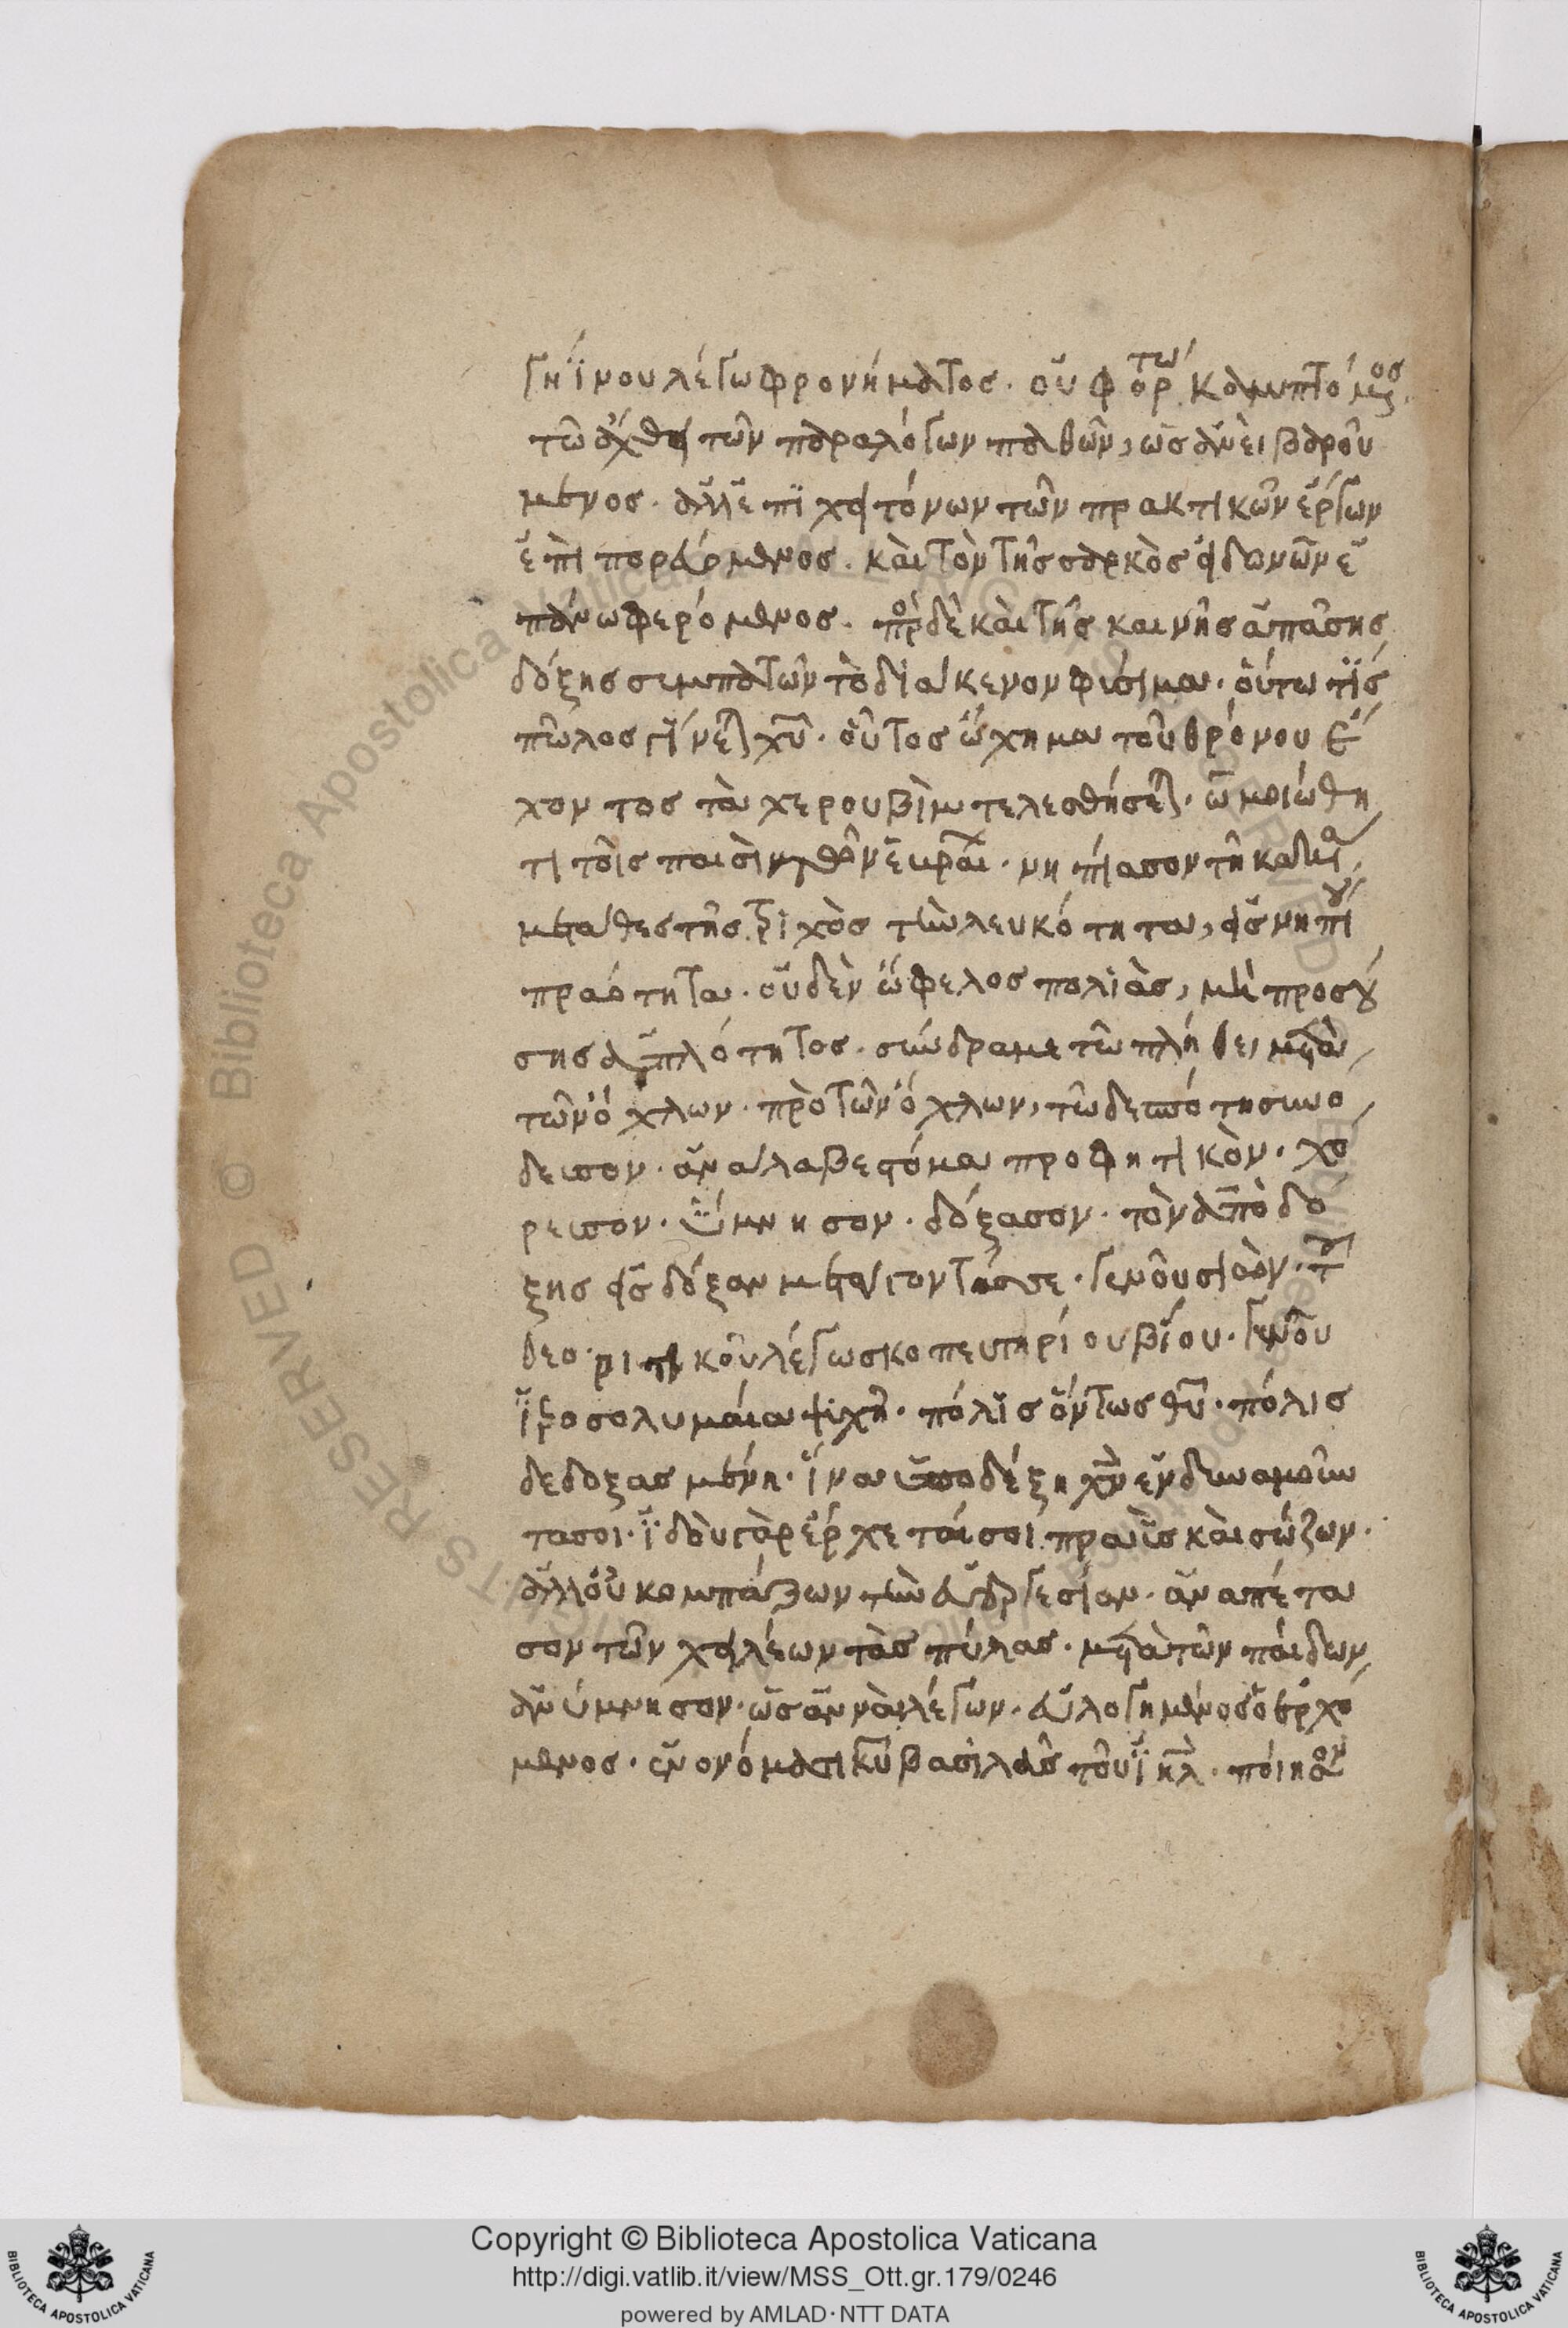 γηΐνου λέγω φρονήματος. οὐ φόρτω καμπτόμενος
τῶ ἄχθει τῶν παραλόγων παθῶν, ὡς ἂν εἰ βαρού
μενος. ἀλλ' ἐπι χειτόνων τῶν πρακτικῶν ἔργων
ἐπιπορευόμενος. καὶ τὸν τῆς σαρκὸς ἡδονῶν ἐ
πάνω φερόμενος. πρὸ δὲ καὶ τῆς καινῆς ἁπάσης
δόξης συμπατῶν τὸ διάκενον φύσιμα. οὕτω τίς
πῶλος γίνεται χυ. οὗτος ὤχημα τοῦ θρόνου ἔ
χοντος τὰ χερουβὶμ τελεσθήσεται. ὡμοιώθη
τι τοῖς παισὶν τῶν ἑβραίων. νηπίασον τῆ κακία
μετάθες τῆς τριχὸς τὴν λευκότητα, εἰς νηπίου
πραότητα. οὐδὲν ὤφελος πολιᾶς, μὴ προσού
σης ἁπλότητος. σύνδραμε τῶ πλήθει μετὰ
τῶν ὄχλων. πρὸ τῶν ὄχλων, τῶ δεσπότη συνο
δευσον. ἀνάλαβε στόμα προφητικὸν. χό
ρευσον. ὕμνησον. δόξασον. τὸν ἀπὸ δό
ξης εἰς δόξαν μεταγοντά σε. γενοῦ σιὼν. τοῦ
θεοριτικοῦ λέγω σκοπευτηρίου βίου. γενοῦ
ἱεροσολυμαία ψυχὴ. πόλις ὄντως θυ. πόλις
δεδοξασμένη. ἵνα ὑποδέξη χν ἐν δυναμοῦν
τα σοι. ἰδοὺ γὰρ ἔρχεταί σοι πραῢς καὶ σώζων.
ἀλλ' οὐ κομπάζων τὴν εὐεργεσίαν. ἀναπέτα
σον τῶν χειλέων τὰς πύλας. μετὰ τῶν παίδων
ἀνύμνησον. ὡσαννὰ λέγων. εὐλογημένος ὁ ἐρχό
μενος. ἐν ονόματι κυ βασιλεῦς τοῦ ιηλ. ποίησον
Copyright © Biblioteca Apostolica Vaticana
http://digi.vatlib.it/view/MSS_Ott.gr.179/0246
powered by AMLAD·NTT DATA